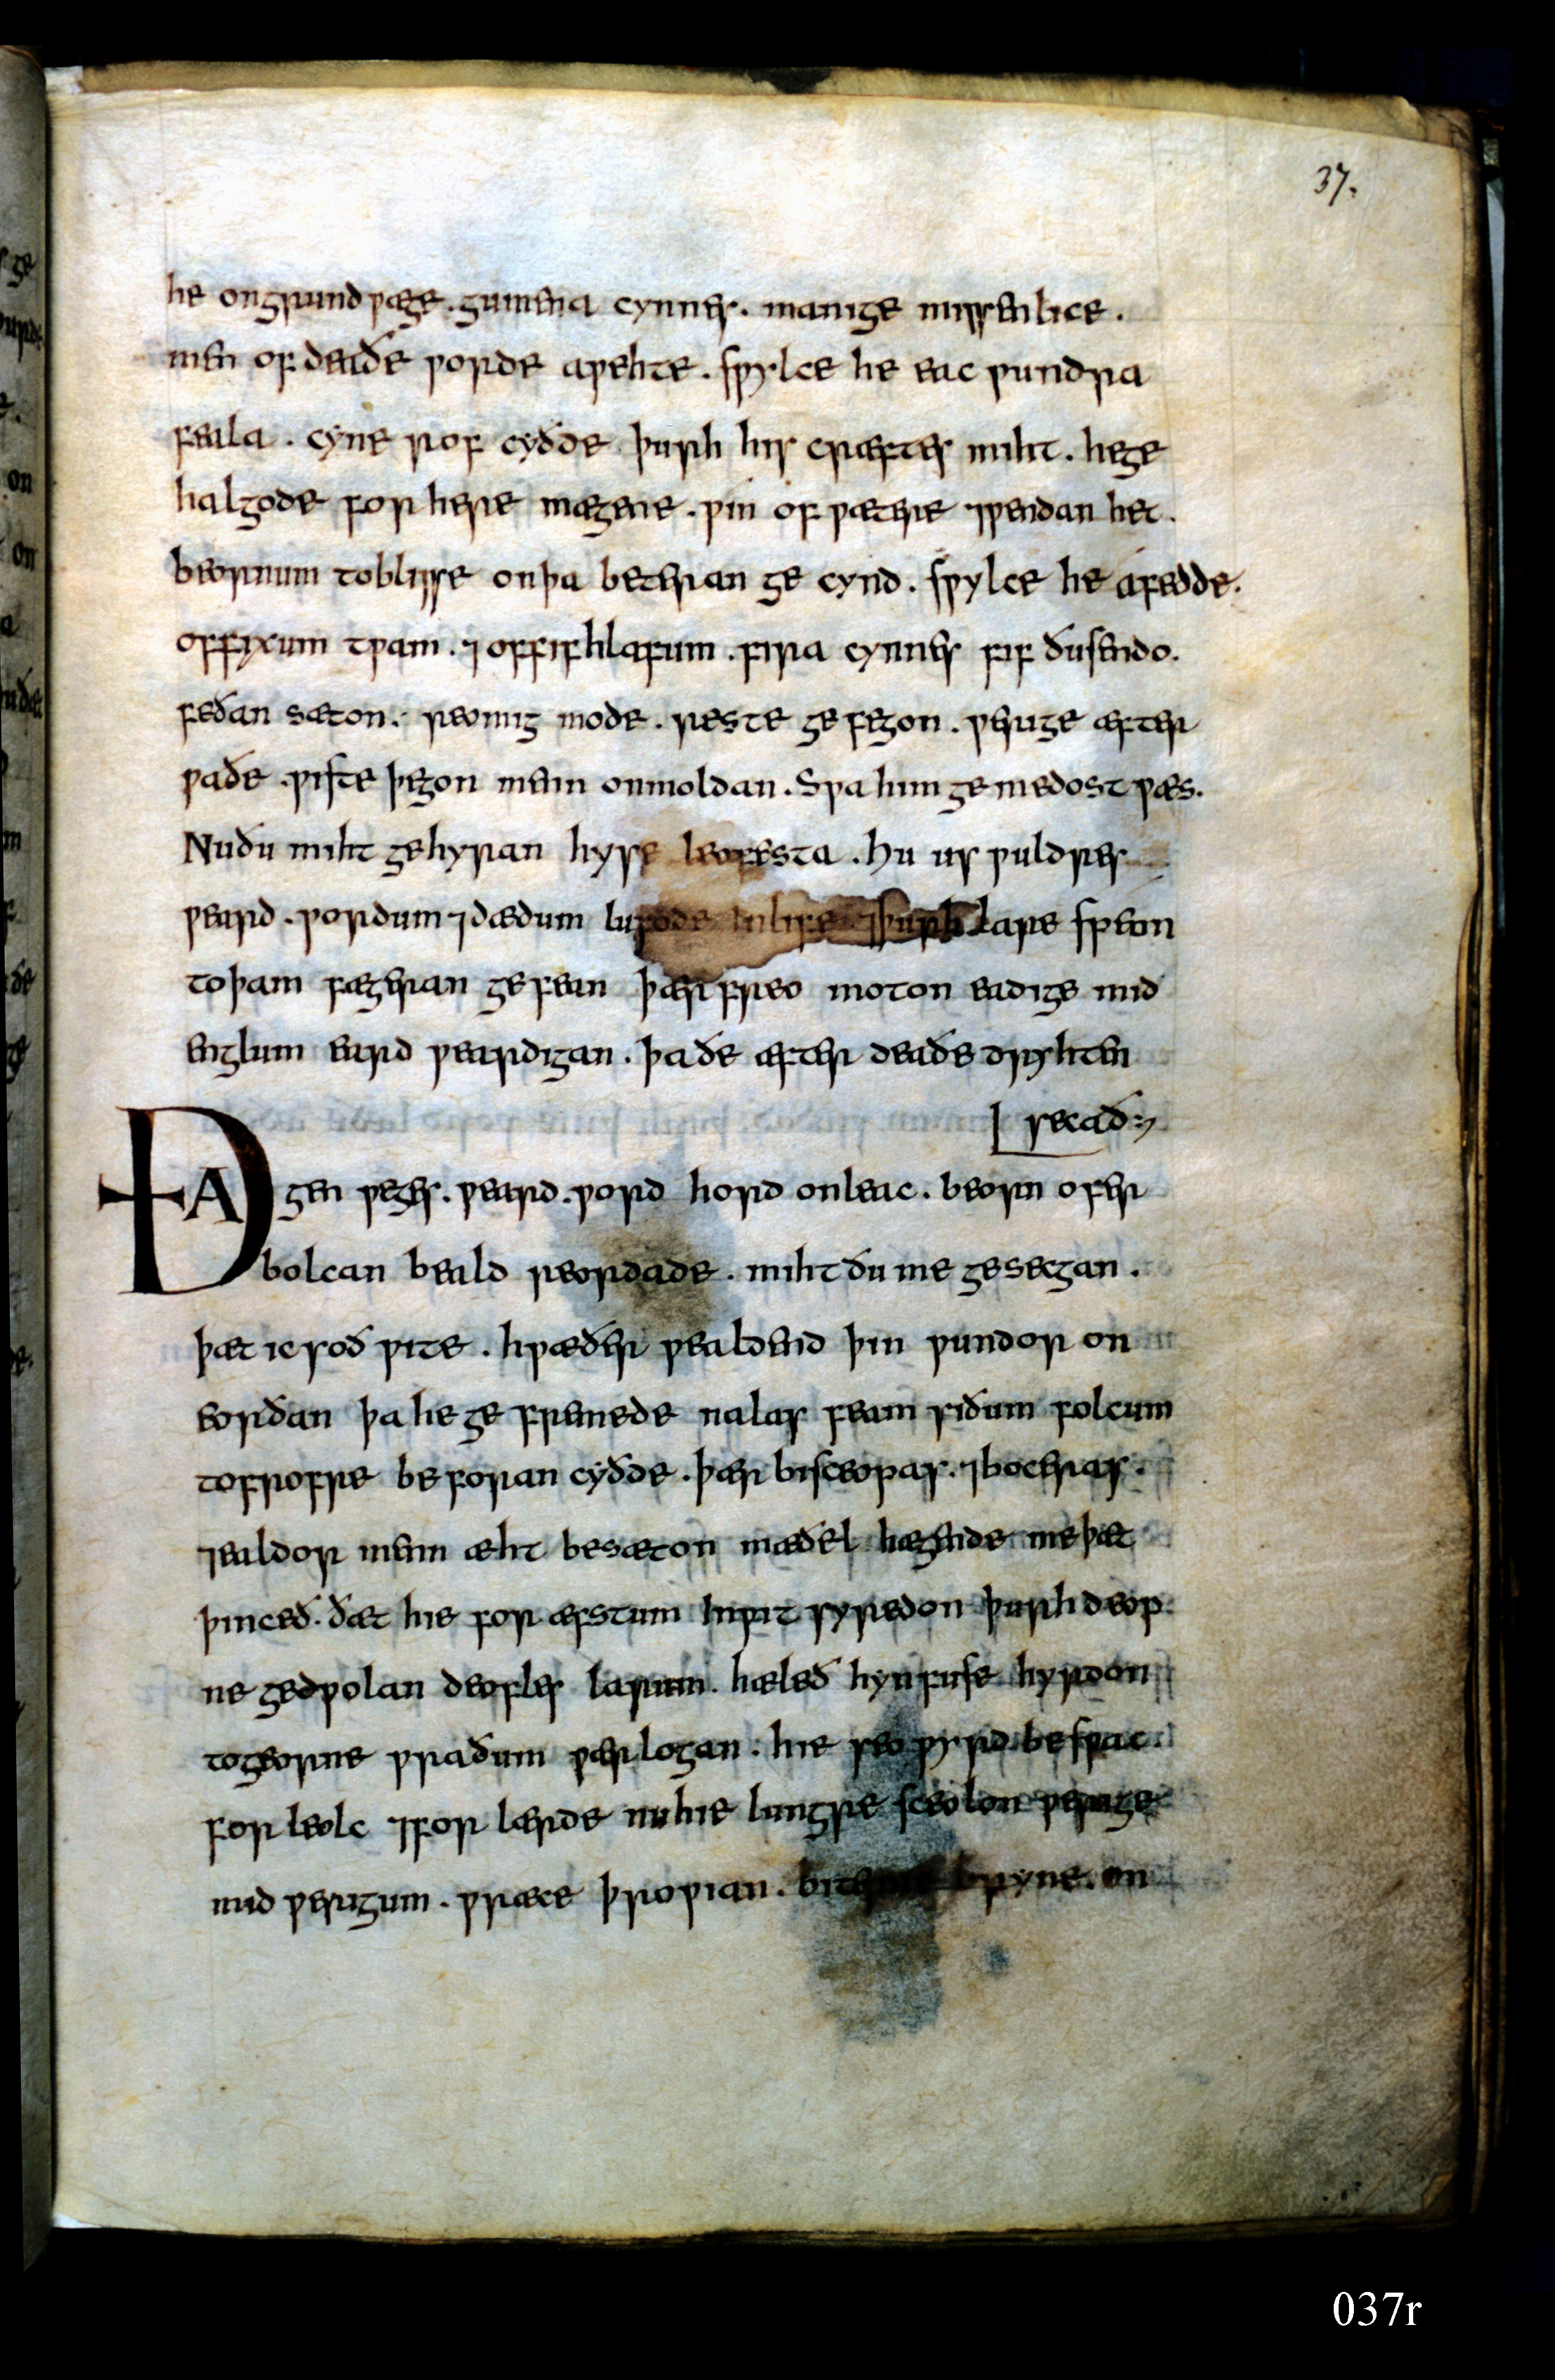 37.
he ongrund ƿæge. gumena cynnes. manige missenlice.
men of deaðe ƿorde aƿehte. sƿylce he eac ƿundra
feala. cyne rof cyðde þurh his cræftes miht. hege
halgode for herie mægene. ƿin of ƿætere ⁊ƿendan het.
beornum toblisse onþa beteran ge cynd. sƿylce he afedde.
offixum tƿam. ⁊offifhlafum. fira cynnes fif ðusendo.
feðan sæton. reonig mode. reste gefegon. ƿerige æfter
ƿaðe. ƿiste þegon menn onmoldan. Sƿa him gemedost ƿæs.
Nuðu miht gehyran hyse leofesta. hu us ƿuldres
ƿeard. ƿordum ⁊dædum lufode inlife ⁊þurh lare sƿeon
toþam fægeran gefean þær freo moton eadige mid
englum eard ƿeardigan. þaðe æfter deaðe dryhten
secað:⁊
ÐA gen ƿeges. ƿeard. ƿord hord onleac. beorn ofer
bolcan beald reordade. miht ðu me gesecgan.
þæt ic soð ƿite. hƿæðer ƿealdend þin ƿundor on
eorðan þa he ge fremede nalas feam siðum folcum
tofrofre beforan cyðde. þær bisceopas. ⁊boceras.
⁊ealdor menn æht besæton mæðel hægende me þæt
þinceð. ðæt hie for æfstum inƿit syredon þurh deop
ne gedƿolan deofles larum. hæleð hynfuse hyrdon
togeorne ƿraðum ƿærlogan. hie seo ƿyrd besƿac.
for leolc ⁊for lærde nuhie lungre sceolon ƿerige
mid ƿerigum. ƿræce þroƿian. biterne bryne. on
037r